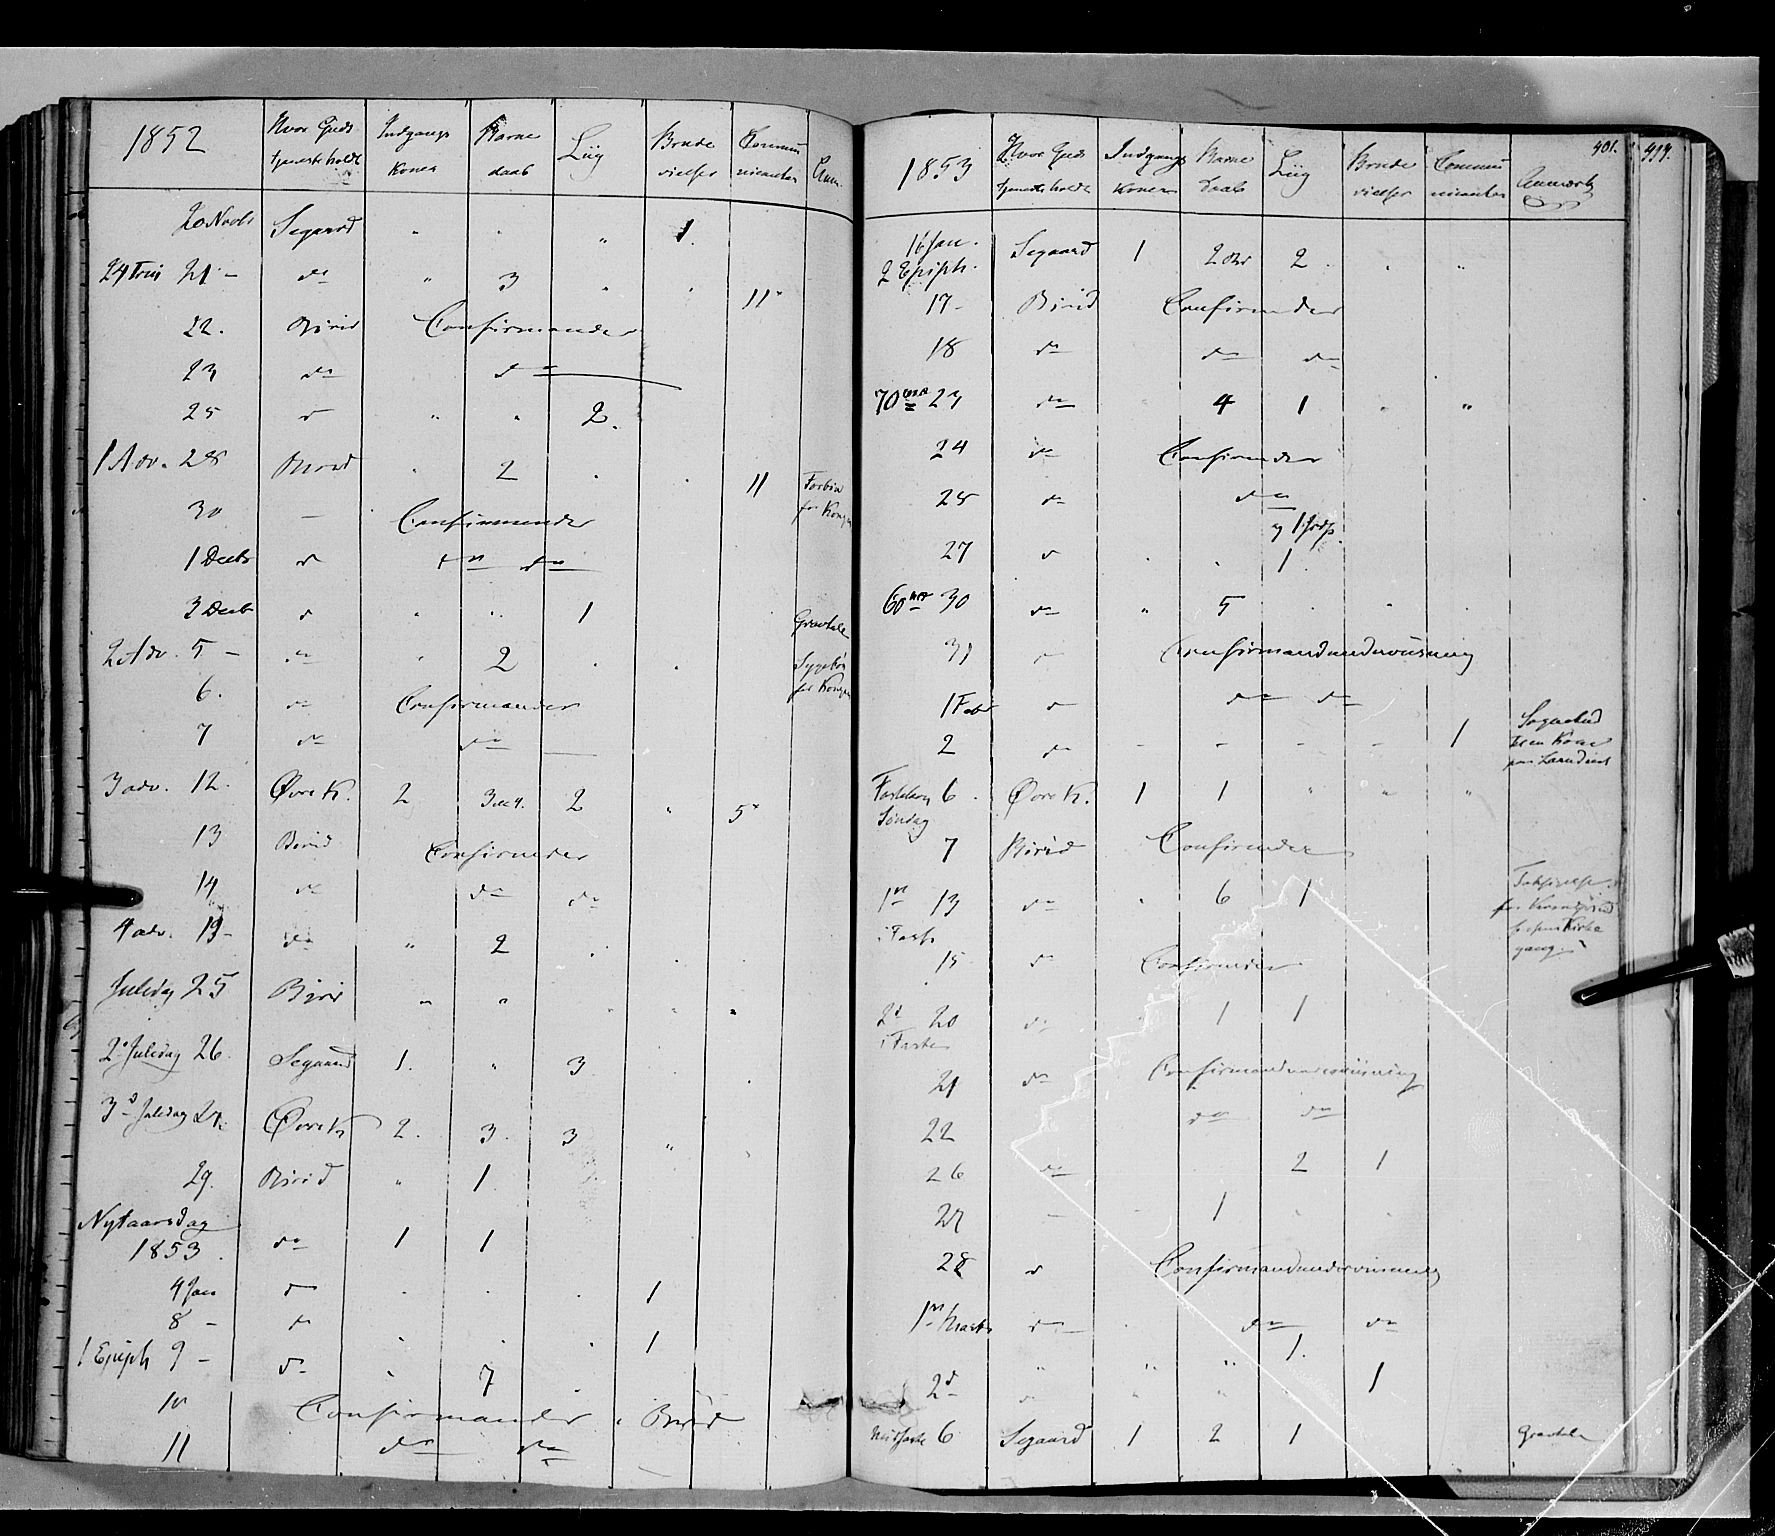 1852 Hvor Guds tjeneste holdt Indgangs Koner Barne daab Liig Brude vielser Commu nicanter Anm.
20 Novbr Segaard " " " 1.
24 Trin 21 - do " 3 " " 11"
22. Birid Confirmander
23 do do
25 do " " 2.
1 Adv. 28 Birid " 2 . . 11 Forbøn for Kongen
30 — Confirmander
1 Decbr do do do
3 Decbr do " " 1 Gravtale
2 Adv. 5 - do " 2 . . for Kongen
6. do Confirmander
7 do do —
3 adv. 12. Øvre K. 2 3 2 " 5"
13 Birid Confirmander
14 do do do
4 adv. 19 - do " 2 . .
Juledag 25 Birid " " . . .
2d Juledag 26. Segaard 1. " 3 . .
3d Juledag 27. Øvre K 2. 3. 3 " .
29. Birid " 1
Nytaarsdag 1853. do 1 1
4 Jan do . . . 1
8 - do . . . 1
1 Epiph 9 - do . 7 .
10 Confirmander i Birid
11 do do
401. 414.
1853 Hvor Guds tjeneste holdt Indgangs Koner Barne daab Liig Brude vielser Commu nicanter Anmærk
16 Jan. 2 Epiph. Segaard 1 2 2 . " "
17 - Birid Confirmander
18 do do do
70 23 do " 4 1 " "
24 do Confirmander
25 do do
og 1 Jordf.
27 do . . 1.
60 30 do " 5 . . .
31 do Confirmandundervisning
1 Febr do do do
2 do - - - - 1 Sognebud
Fastelavn Søndag 6. Øvre K. 1 1 " " "
7 Birid Confirmander
1ste i Faste 13 do . 6 1 Taksigelse for Kirke gang.
15 do Confirmander
2d i Faste 20 do . 1 1
21 do Confirmandundervisning
22 do do
26 do . . 2 1
27 - . 1 . .
28 do Confirmandundervisning
1ste Marts do . do do
" " " 1.
2d do " " 1
Midfaste 6 Segaard 1 2 1 Gravtale